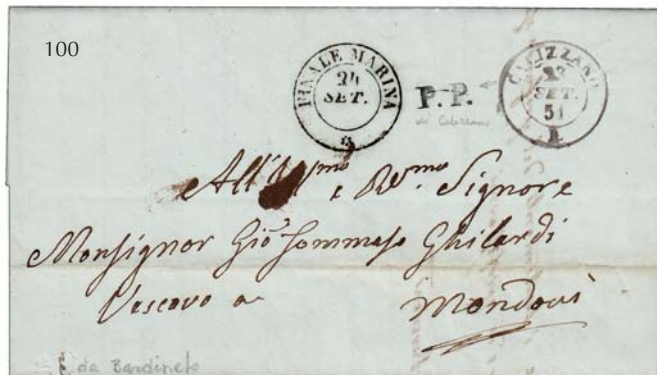 100
FINALE MARINA
24
SET.
P.P.
CALIZZANO
22
SET.
51
di Calizzano
All' e Rv.mo Signore
Monsignor Gio Tommaso Ghilardi
Vescovo a Mondovì
da Bardineto